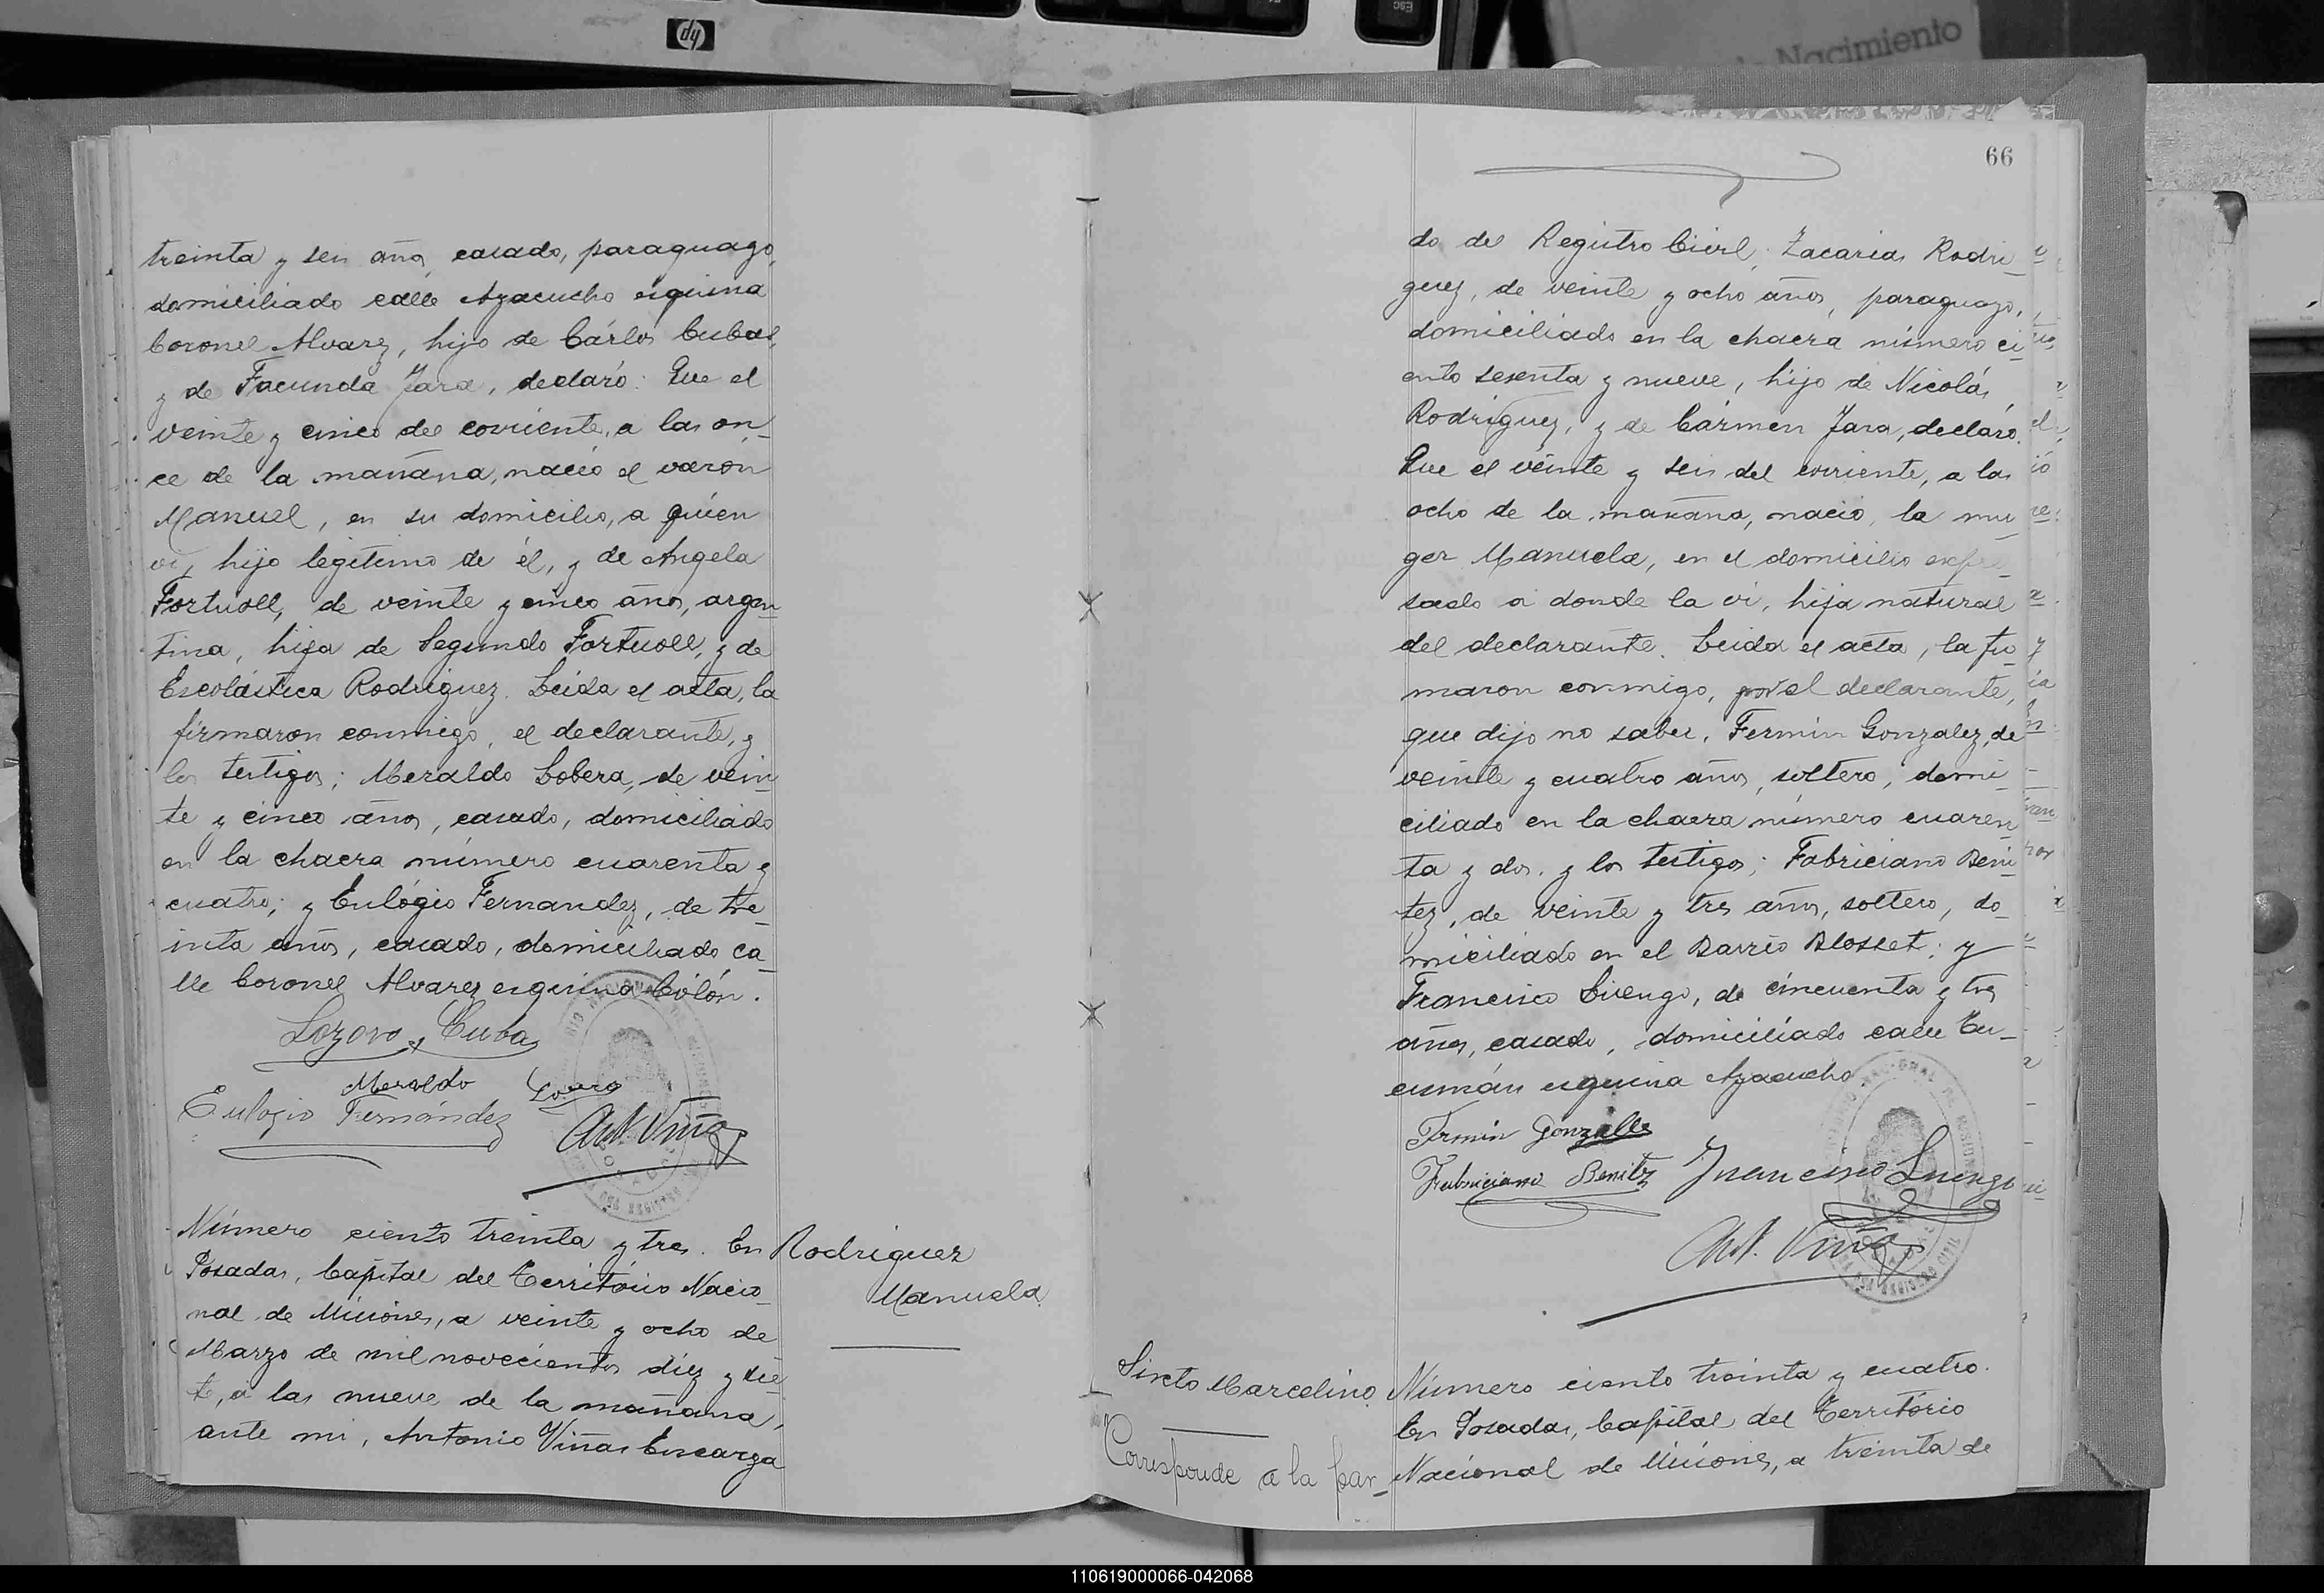 hp
ESC
Nacimiento
treinta y seis años, casado, paraguayo,
domiciliado calle Ayacucho esquina
Coronel Alvarez, hijo de Cárlos Cubas,
y de Facunda Jara, declaró: Que el
veinte y cinco del corriente, a las on_
ce de la mañana, nació el varon
Manuel, en su domicilio, a quien
vi, hijo legítimo de él, y de Angela
Fortuoll, de veinte y cinco años, argen_
tina, hija de Segundo Fortuoll, y de
Escolástica Rodriguez. Leida el acta, la
firmaron conmigo, el declarante, y
los testigos; Meraldo Lobera, de vein_
te y cinco años, casado, domiciliado
en la chacra número cuarenta y
cuatro; y Eulógio Fernandez, de tre_
inta años, casado, domiciliado ca_
lle Coronel Alvarez esquina Colón.
Meraldo
Eulogio Fernández
Ant. Viñas
Número ciento treinta y tres. En
Posadas, Capital del Território Nacio_
nal de Misiones, a veinte y ocho de
Marzo de mil novecientos diez y sie_
te, a las nueve de la mañana,
ante mi, Antonio Viñas Encarga
Rodriguez
Manuela.
66
do del Registro Civil, Zacarias Rodri_
guez, de veinte y ocho años, paraguayo,
domiciliado en la chacra número ci_
ento sesenta y nueve, hijo de Nicolás
Rodriguez, y de Cármen Jara, declaró:
Que el veinte y seis del corriente, a las
ocho de la mañana, nació, la mu_
ger Manuela, en el domicilio expre_
sado a donde la vi, hija natural
del declarante. Leida el acta, la fir_
maron conmigo, por el declarante,
que dijo no saber, Fermin Gonzalez, de
veinte y cuatro años, soltero, domi_
ciliado en la chacra número cuaren_
ta y dos. y los testigos; Fabriciano Beni_
tez, de veinte y tres años, soltero, do_
miciliado en el Barrio Blosset; y
Francisco Luengo, de cincuenta y tres
años, casado, domiciliado calle Tu_
cumán esquina Ayacucho.
Fermin Gonzalez
Fabriciano Benitez Francisco Luengo
Ant. Viñas
Sixto Marcelino.
Corresponde a la par_
Número ciento treinta y cuatro.
En Posadas, Capital del Território
Nacional de Misiones, a treinta de
110619000066-042068